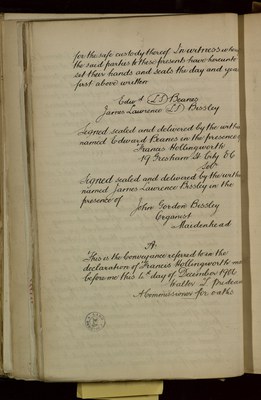 for the safe custody thereof In witness whereof
the said parties to these presents have hereunto
set their hands and seals the day and year
first above written
Edwd (LS) Beanes
James Lawrence (LS) Bissley
Signed sealed and delivered by the within
named Edward Beanes in the presence of
Francis Hollingworth
19 Gresham St City EC
Signed sealed and delivered by the within
named James Lawrence Bissley in the
presence of
John Gordon Bissley
Organist
Maidenhead
A.
This is the Conveyance referred to in the
declaration of Francis Hollingworth made
before me this 4th day of December 1902
Walter L.
A Commissioner for oaths